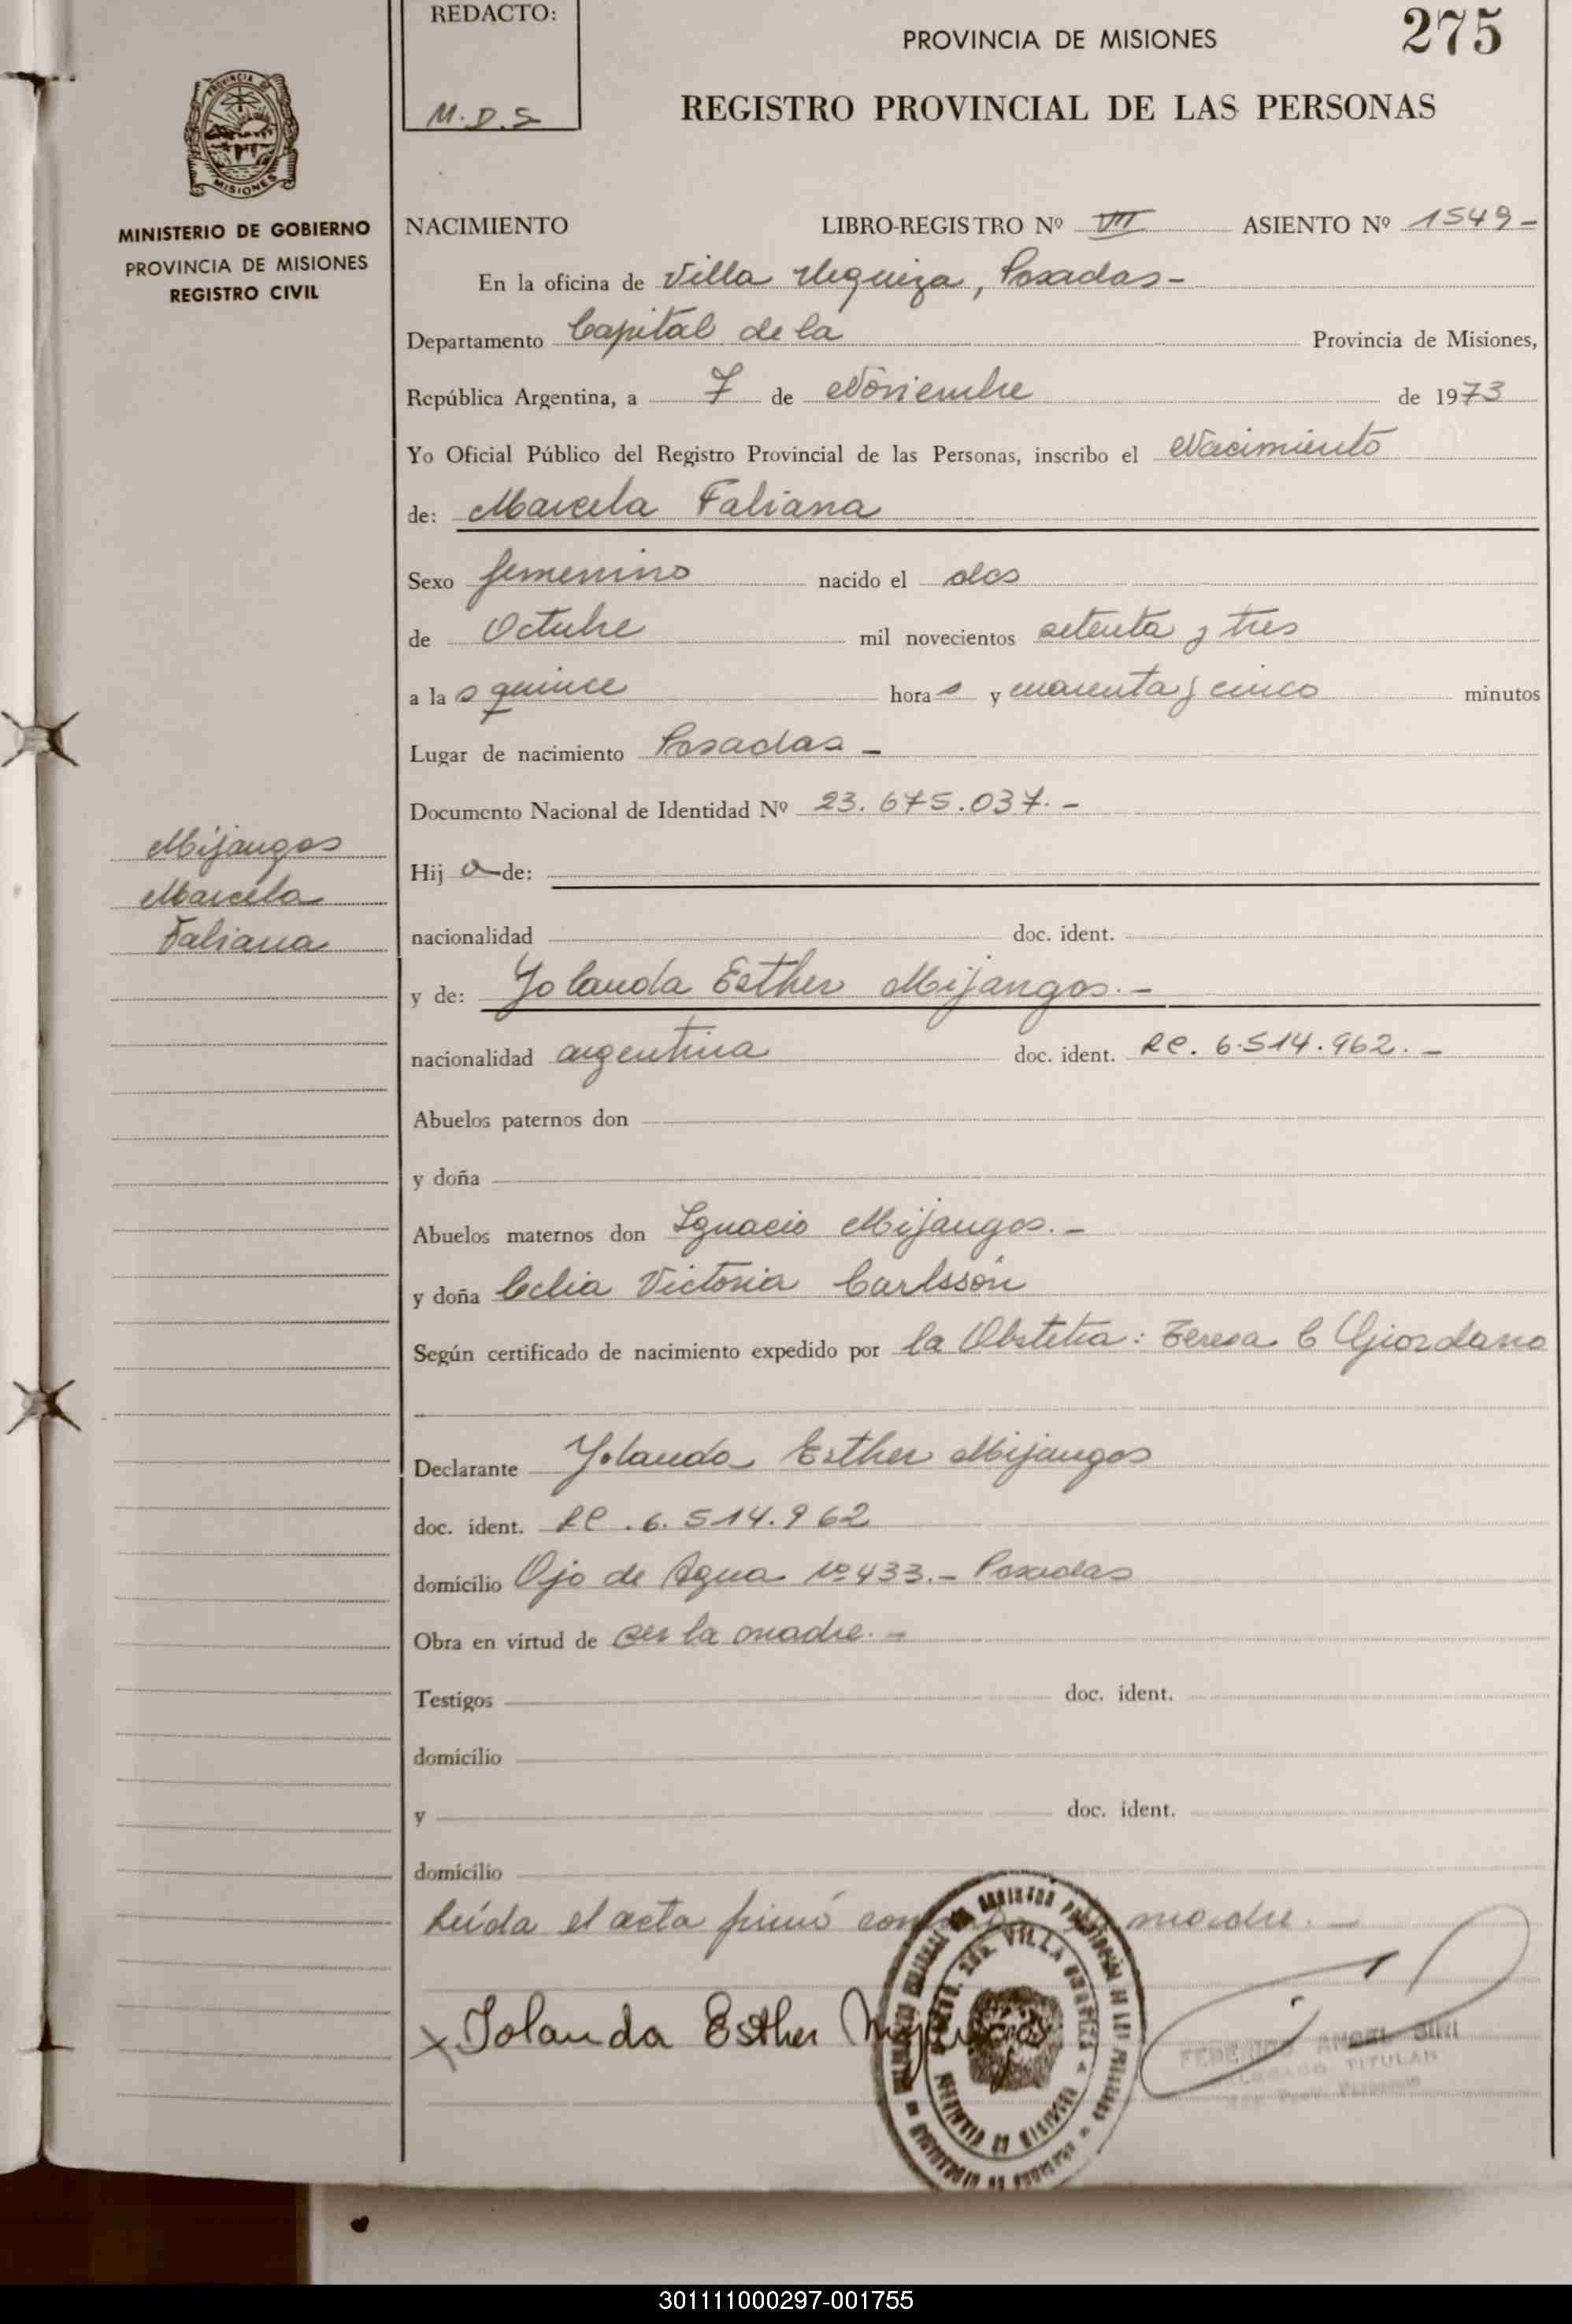 REDACTO:
M.D.S
PROVINCIA DE MISIONES
275
REGISTRO PROVINCIAL DE LAS PERSONAS
PROVINCIA DE
MISIONES
MINISTERIO DE GOBIERNO
PROVINCIA DE MISIONES
REGISTRO CIVIL
NACIMIENTO LIBRO-REGISTRO Nº VII ASIENTO Nº 1549-
En la oficina de Villa Urquiza, Posadas-
Departamento Capital de la Provincia de Misiones,
República Argentina, a 7 de Noviembre de 1973
Yo Oficial Público del Registro Provincial de las Personas, inscribo el Nacimiento
de: Marcela Faliana
Sexo femenino nacido el dos
de Octubre mil novecientos setenta y tres
a la s quince hora s y cuarenta y cinco minutos
Lugar de nacimiento Posadas -
Documento Nacional de Identidad Nº 23.675.037.-
Mijangos
Marcela
Faliana
Hij a de:
nacionalidad doc. ident.
y de: Yolanda Esther Mijangos.-
nacionalidad argentina doc. ident. LC. 6.514.962.-
Abuelos paternos don
y doña
Abuelos maternos don Ignacio Mijangos.-
y doña Celia Victoria Carlsson
Según certificado de nacimiento expedido por la Obstetra: Teresa C Giordano
Declarante Yolanda Esther Mijangos
doc. ident. LC. 6.514.962
domicilio Ojo de Agua Nº 433.- Posadas
Obra en virtud de ser la madre.-
Testigos doc. ident.
domicilio
y doc. ident.
domicilio
Leída el acta firmó conmigo madre.-
x Yolanda Esther Mijangos
VILLA URQUIZA
FEDERICO ANGEL
TITULAR
301111000297-001755